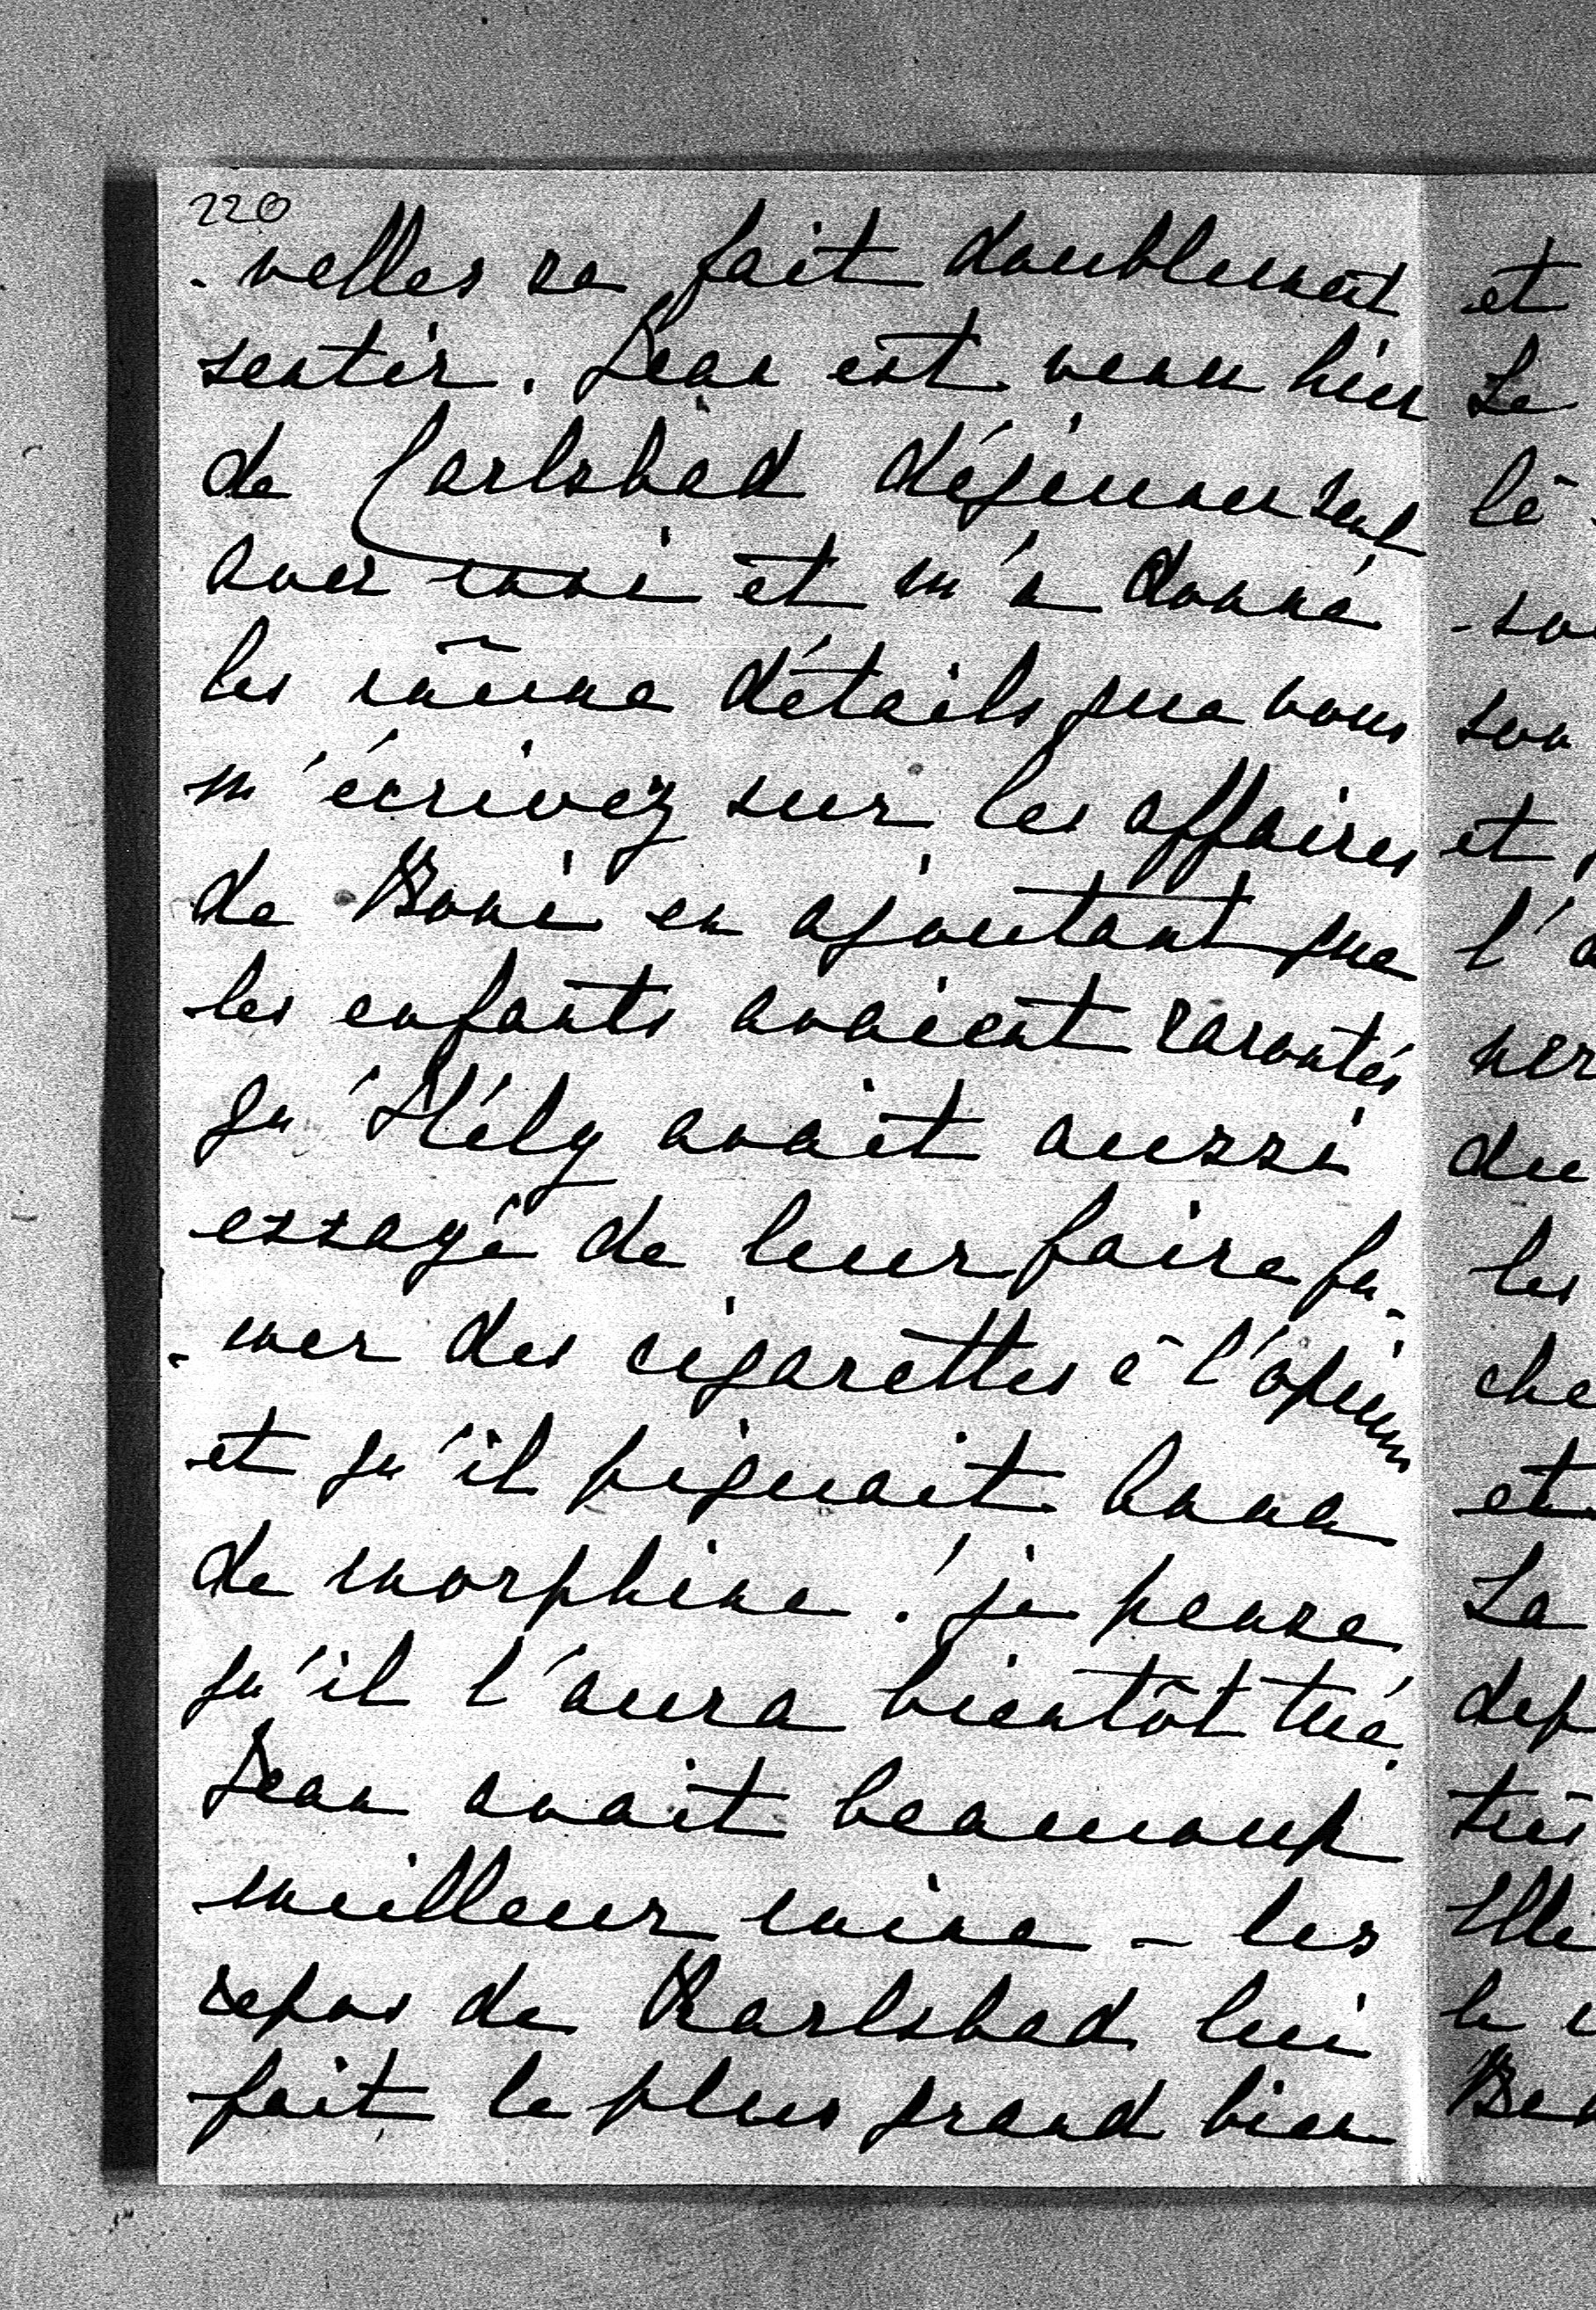 220
- velles se fait doublement
sentir. Jean est venu hier
de Carlsbad déjeuner seul
avec moi et m'a donné
les même détails que vous
m'écrivez sur les affaires
de Boni en ajoutant que
les enfants avaient racontés
qu'Hély avait aussi
essayé de leur faire fu-
- mer des cigarettes à l'opium
et qu'il piquait Anna
de morphine! je pense
qu'il l'aura bientôt tué.
Jean avait beaucoup
meilleur mine – les
repos de Karlsbad lui
fait le plus grand bien
et
Le
là
- so
son
et
l'a
ner
du
les
che
et
La
dep
très
Elle
le